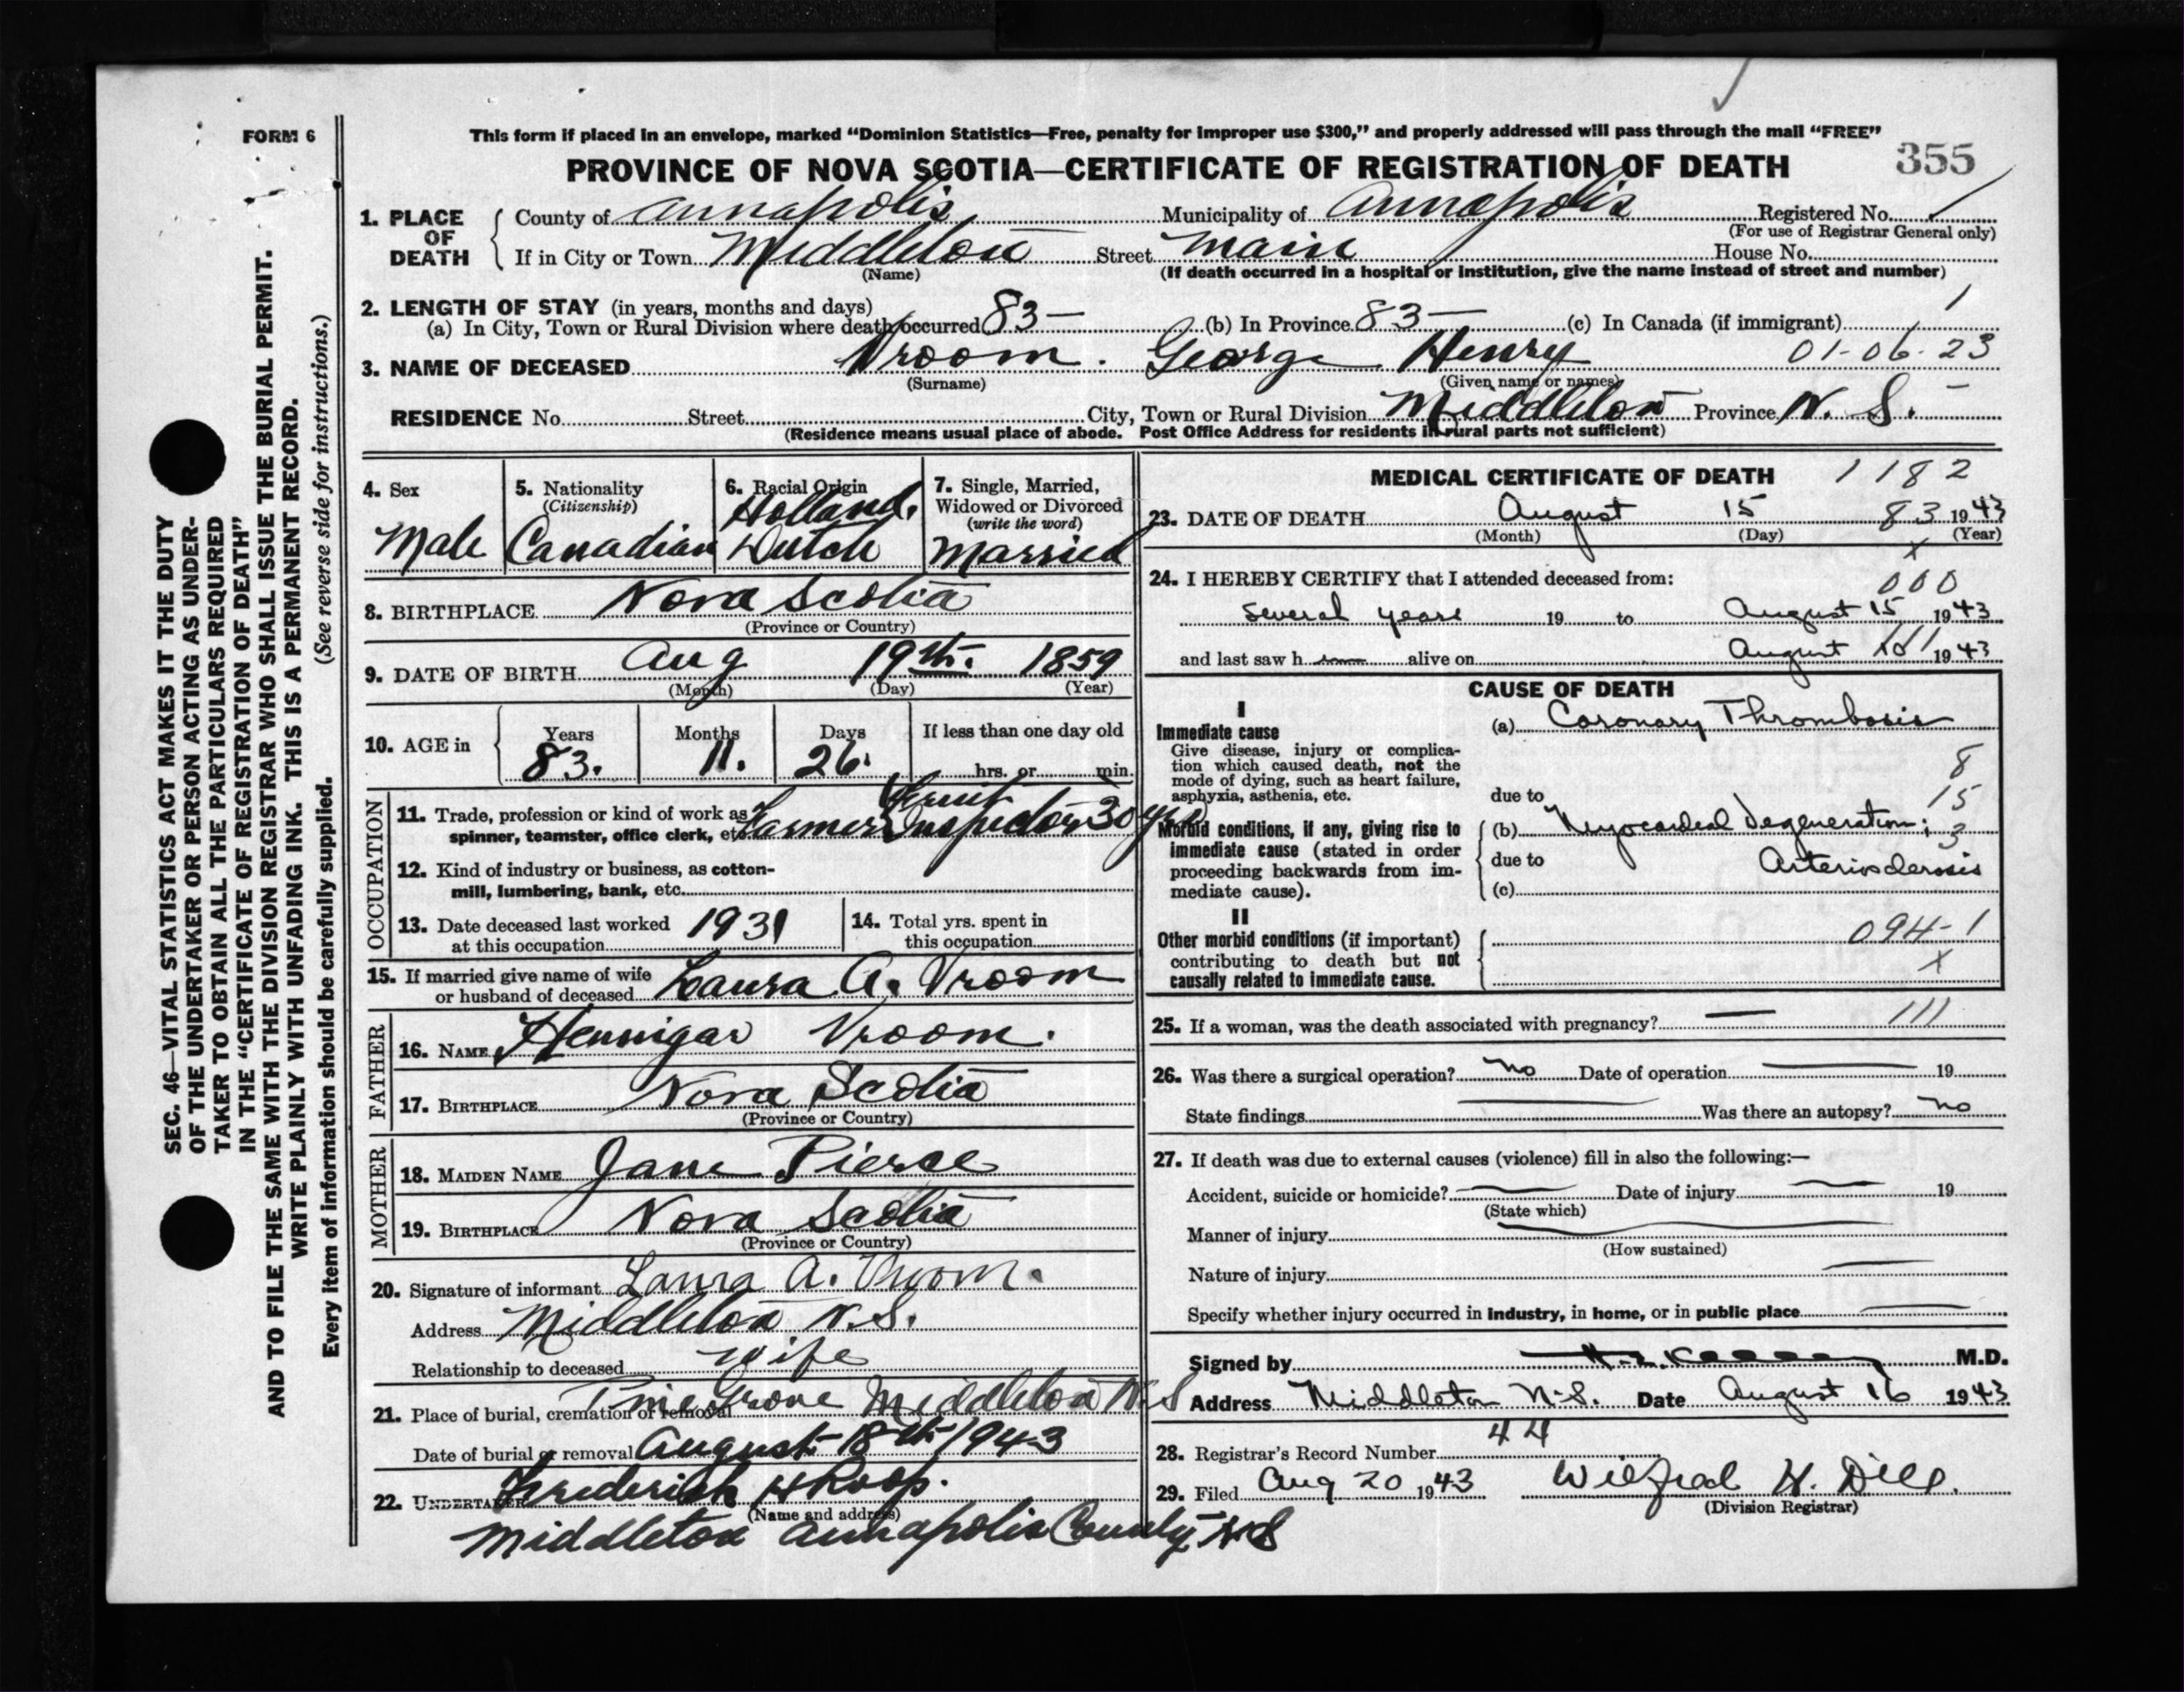 FORM 6
This form if placed in an envelope, marked “Dominion Statistics—Free, penalty for improper use $300,” and properly addressed will pass through the mail “FREE”
PROVINCE OF NOVA SCOTIA—CERTIFICATE OF REGISTRATION OF DEATH 355
1. PLACE OF DEATH
County of Annapolis Municipality of Annapolis Registered No.
(For use of Registrar General only)
If in City or Town Middleton Street Main House No.
(Name) (If death occurred in a hospital or institution, give the name instead of street and number)
2. LENGTH OF STAY (in years, months and days)
(a) In City, Town or Rural Division where death occurred 83 — (b) In Province 83 — (c) In Canada (if immigrant) 1
3. NAME OF DECEASED Vroom. George Henry 01-06-23
(Surname) (Given name or names)
RESIDENCE No. Street City, Town or Rural Division Middleton Province N. S. —
(Residence means usual place of abode. Post Office Address for residents in rural parts not sufficient)
4. Sex
Male
5. Nationality
(Citizenship)
Canadian
6. Racial Origin
Holland.
Dutch
7. Single, Married,
Widowed or Divorced
(write the word)
Married
8. BIRTHPLACE Nova Scotia
(Province or Country)
9. DATE OF BIRTH Aug 19th. 1859
(Month) (Day) (Year)
10. AGE in
Years 83.
Months 11.
Days 26.
If less than one day old
hrs. or min.
OCCUPATION
11. Trade, profession or kind of work as
spinner, teamster, office clerk, etc. Farmer Fruit Inspector 30 yrs
12. Kind of industry or business, as cotton-
mill, lumbering, bank, etc.
13. Date deceased last worked
at this occupation 1931
14. Total yrs. spent in
this occupation
15. If married give name of wife
or husband of deceased Laura A. Vroom
FATHER
16. NAME Hennigar Vroom.
17. BIRTHPLACE Nova Scotia
(Province or Country)
MOTHER
18. MAIDEN NAME Jane Pierce
19. BIRTHPLACE Nova Scotia
(Province or Country)
20. Signature of informant Laura A. Vroom.
Address Middleton N.S.
Relationship to deceased wife
21. Place of burial, cremation or removal Pine Grove Middleton N.S
Date of burial or removal August 18th 1943
22. UNDERTAKER Frederick H Roop.
(Name and address)
Middleton Annapolis County N S
MEDICAL CERTIFICATE OF DEATH 1182
23. DATE OF DEATH August 15 83 1943
(Month) (Day) (Year)
x
24. I HEREBY CERTIFY that I attended deceased from: 000
several years 19 to August 15 1943
and last saw h alive on August 1943
CAUSE OF DEATH
I
Immediate cause
Give disease, injury or complica-
tion which caused death, not the
mode of dying, such as heart failure,
asphyxia, asthenia, etc.
(a) Coronary Thrombosis
8
due to 15
Morbid conditions, if any, giving rise to
immediate cause (stated in order
proceeding backwards from im-
mediate cause).
(b) Myocardial Degeneration; 3
due to Arteriosclerosis
(c)
II
Other morbid conditions (if important)
contributing to death but not
causally related to immediate cause.
094-1
x
25. If a woman, was the death associated with pregnancy? — 111
26. Was there a surgical operation? no Date of operation — 19
State findings — Was there an autopsy? no
27. If death was due to external causes (violence) fill in also the following:—
Accident, suicide or homicide? — Date of injury — 19
(State which)
Manner of injury —
(How sustained)
Nature of injury —
Specify whether injury occurred in industry, in home, or in public place —
Signed by M.D.
Address Middleton N-S. Date August 16 1943
28. Registrar's Record Number 44
29. Filed Aug 20 1943 Wilfred H. Dill.
(Division Registrar)
SEC. 46—VITAL STATISTICS ACT MAKES IT THE DUTY
OF THE UNDERTAKER OR PERSON ACTING AS UNDER-
TAKER TO OBTAIN ALL THE PARTICULARS REQUIRED
IN THE “CERTIFICATE OF REGISTRATION OF DEATH”
AND TO FILE THE SAME WITH THE DIVISION REGISTRAR WHO SHALL ISSUE THE BURIAL PERMIT.
WRITE PLAINLY WITH UNFADING INK. THIS IS A PERMANENT RECORD.
Every item of information should be carefully supplied. (See reverse side for instructions.)